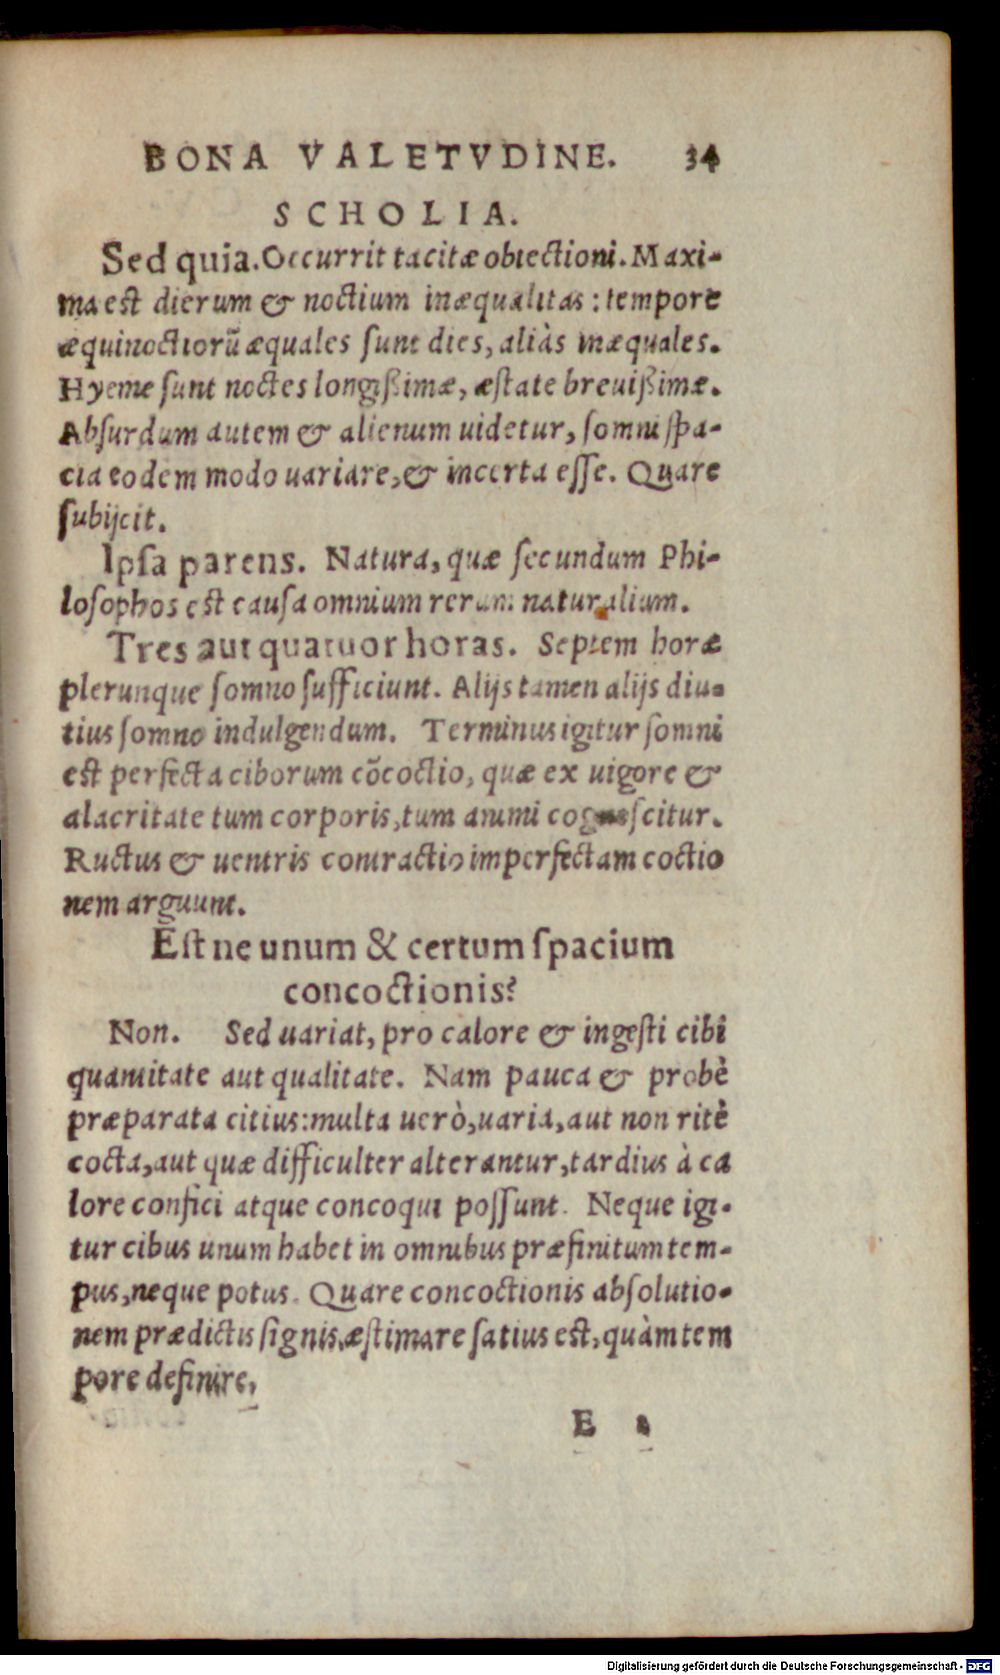 BONA VALETVDINE. 34
SCHOLIA.
Sed quia. Occurrit tacitæ obiectioni. Maxi-
ma est dierum & noctium inæqualitas: tempore
æquinoctiorũ æquales sunt dies, aliàs inæquales.
Hyeme sunt noctes longißimæ, æstate breuißimæ.
Absurdum autem & alienum uidetur, somni spa-
cia eodem modo uariare, & incerta esse. Quare
subijcit.
Ipsa parens. Natura, quæ secundum Phi-
losophos est causa omnium rerum naturalium.
Tres aut quatuor horas. Septem horæ
plerunque somno sufficiunt. Alijs tamen alijs diu-
tius somno indulgendum. Terminus igitur somni
est perfecta ciborum cõcoctio, quæ ex uigore &
alacritate tum corporis, tum animi cognoscitur.
Ructus & uentris contractio imperfectam coctio
nem arguunt.
Est ne unum & certum spacium
concoctionis?
Non. Sed uariat, pro calore & ingesti cibi
quantitate aut qualitate. Nam pauca & probè
præparata citius: multa uerò, uaria, aut non ritè
cocta, aut quæ difficulter alterantur, tardius à ca
lore confici atque concoqui possunt. Neque igi-
tur cibus unum habet in omnibus præfinitum tem-
pus, neque potus. Quare concoctionis absolutio-
nem prædictis signis, æstimare satius est, quàm tem
pore definire,
E 2
Digitalisierung gefördert durch die Deutsche Forschungsgemeinschaft - DFG